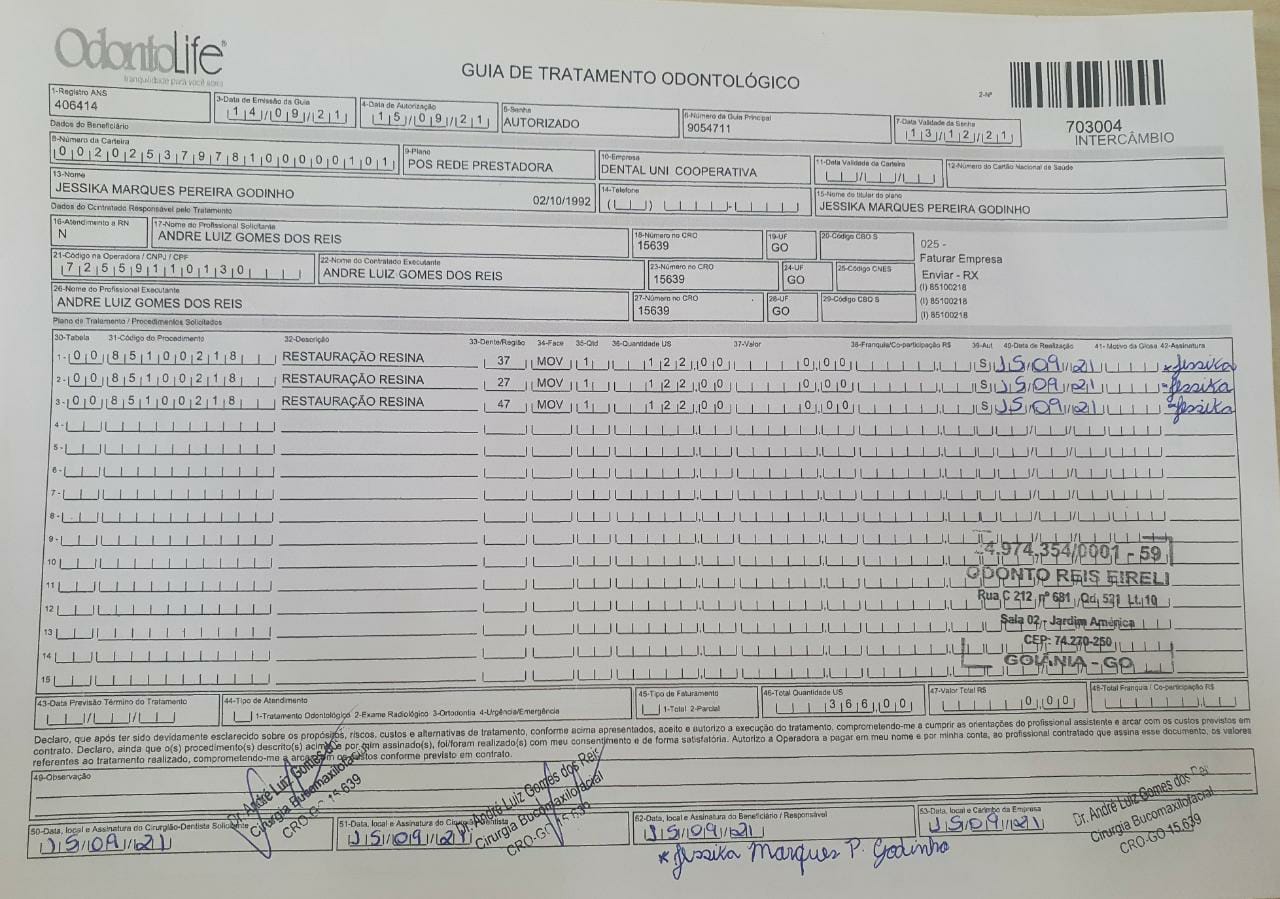 OdontoLife®
tranquilidade para você sorrir
GUIA DE TRATAMENTO ODONTOLÓGICO
2-Nº
703004
INTERCÂMBIO
1-Registro ANS
406414
3-Data de Emissão da Guia
14/09/21
4-Data de Autorização
15/09/21
5-Senha
AUTORIZADO
6-Número da Guia Principal
9054711
7-Data Validade da Senha
13/12/21
Dados do Beneficiário
8-Número da Carteira
00202537978100000101
9-Plano
POS REDE PRESTADORA
10-Empresa
DENTAL UNI COOPERATIVA
11-Data Validade da Carteira
12-Número do Cartão Nacional de Saúde
13-Nome
JESSIKA MARQUES PEREIRA GODINHO 02/10/1992
14-Telefone
15-Nome do titular do plano
JESSIKA MARQUES PEREIRA GODINHO
Dados do Contratado Responsável pelo Tratamento
16-Atendimento a RN
N
17-Nome do Profissional Solicitante
ANDRE LUIZ GOMES DOS REIS
18-Número no CRO
15639
19-UF
GO
20-Código CBO S
025 -
Faturar Empresa
Enviar - RX
(I) 85100218
(I) 85100218
(I) 85100218
21-Código na Operadora / CNPJ / CPF
72559110130
22-Nome do Contratado Executante
ANDRE LUIZ GOMES DOS REIS
23-Número no CRO
15639
24-UF
GO
25-Código CNES
26-Nome do Profissional Executante
ANDRE LUIZ GOMES DOS REIS
27-Número no CRO
15639
28-UF
GO
29-Código CBO S
Plano de Tratamento / Procedimentos Solicitados
30-Tabela 31-Código do Procedimento 32-Descrição 33-Dente/Região 34-Face 35-Qtd 36-Quantidade US 37-Valor 38-Franquia/Co-participação R$ 39-Aut 40-Data de Realização 41- Motivo da Glosa 42-Assinatura
1- 00 85100218 RESTAURAÇÃO RESINA 37 MOV 1 122,00 0,00 S 15/09/21 Jessika
2- 00 85100218 RESTAURAÇÃO RESINA 27 MOV 1 122,00 0,00 S 15/09/21 Jessika
3- 00 85100218 RESTAURAÇÃO RESINA 47 MOV 1 122,00 0,00 S 15/09/21 Jessika
4-
5-
6-
7-
8-
9-
10
11
12
13
14
15
4.974.354/0001 - 59
ODONTO REIS EIRELI
Rua C 212, nº 681 Qd. 531 Lt. 10
Sala 02 - Jardim América
CEP: 74.270-250
GOIÂNIA - GO
43-Data Previsão Término do Tratamento
44-Tipo de Atendimento
1-Tratamento Odontológico 2-Exame Radiológico 3-Ortodontia 4-Urgência/Emergência
45-Tipo de Faturamento
1-Total 2-Parcial
46-Total Quantidade US
366,00
47-Valor Total R$
0,00
48-Total Franquia / Co-participação R$
Declaro, que após ter sido devidamente esclarecido sobre os propósitos, riscos, custos e alternativas de tratamento, conforme acima apresentados, aceito e autorizo a execução do tratamento, comprometendo-me a cumprir as orientações do profissional assistente e arcar com os custos previstos em
contrato. Declaro, ainda que o(s) procedimento(s) descrito(s) acima, e por mim assinado(s), foi/foram realizado(s) com meu consentimento e de forma satisfatória. Autorizo a Operadora a pagar em meu nome e por minha conta, ao profissional contratado que assina esse documento, os valores
referentes ao tratamento realizado, comprometendo-me a arcar com os custos conforme previsto em contrato.
49-Observação
50-Data, local e Assinatura do Cirurgião-Dentista Solicitante
15/09/21
Dr. André Luiz Gomes dos
Cirurgia Bucomaxilofacial
CRO-GO 15.639
51-Data, local e Assinatura do Cirurgião-Dentista
15/09/21
Dr. André Luiz Gomes dos Reis
Cirurgia Bucomaxilofacial
CRO-GO 15.639
52-Data, local e Assinatura do Beneficiário / Responsável
15/09/21
* Jessika Marques P. Godinho
53-Data, local e Carimbo da Empresa
15/09/21
Dr. André Luiz Gomes dos Reis
Cirurgia Bucomaxilofacial
CRO-GO 15.639